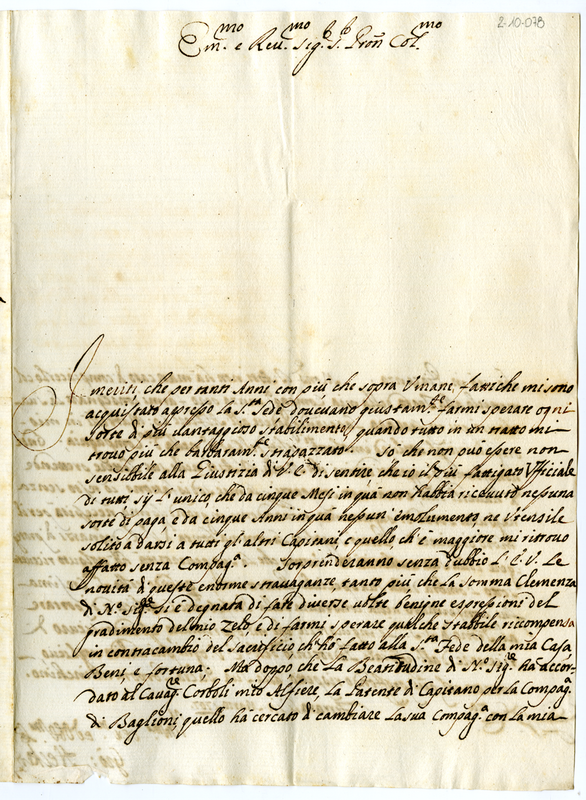 2-10-078
Em.mo e Reu.mo Sig.r S.r Pron Col.mo
I meriti, che per tanti Anni con più che sopra Vmane fattiche mi sono
acquistato appresso la S.ta Sede doueuano giustam.te farmi sperare ogni
sorte di più uantaggioso stabilimento, quando tutto in un tratto mi
trouo più che barbaram.te strapazzato. So che non può essere non
sensibile alla Giustizia di V. E. di sentire, che io il più fattigato Vfficiale
di tutti sij l'unico, che da cinque Mesi in quà non habbia riceuuto nessuna
sorte di paga, e da cinque Anni in quà nessun' emolumento, ne Vtensile
solito a darsi a tutti gli altri Capitani, e quello ch'è maggiore mi ritrouo
affatto senza Compag.a. Sorprenderanno senza dubbio l'E. V. le
nouità di queste enorme strauaganze, tanto più che la somma Clemenza
di N.ro Sig.re si è degnata di fare diuerse uolte benigne espressioni del
gradimento del mio zelo, e di farmi sperare qualche stabile ricompensa
in contracambio del Sacrificio ch'hò fatto alla S.ta Sede della mia Casa,
Beni, e fortuna. Mà doppo che la Beatitudine di N.ro Sig.re hà accor-
dato al Cauag.re Corboli mio Alfiere, la Patente di Capitano per la Compag.a
di Baglioni, quello hà cercato di cambiare la sua Compag.a con la mia